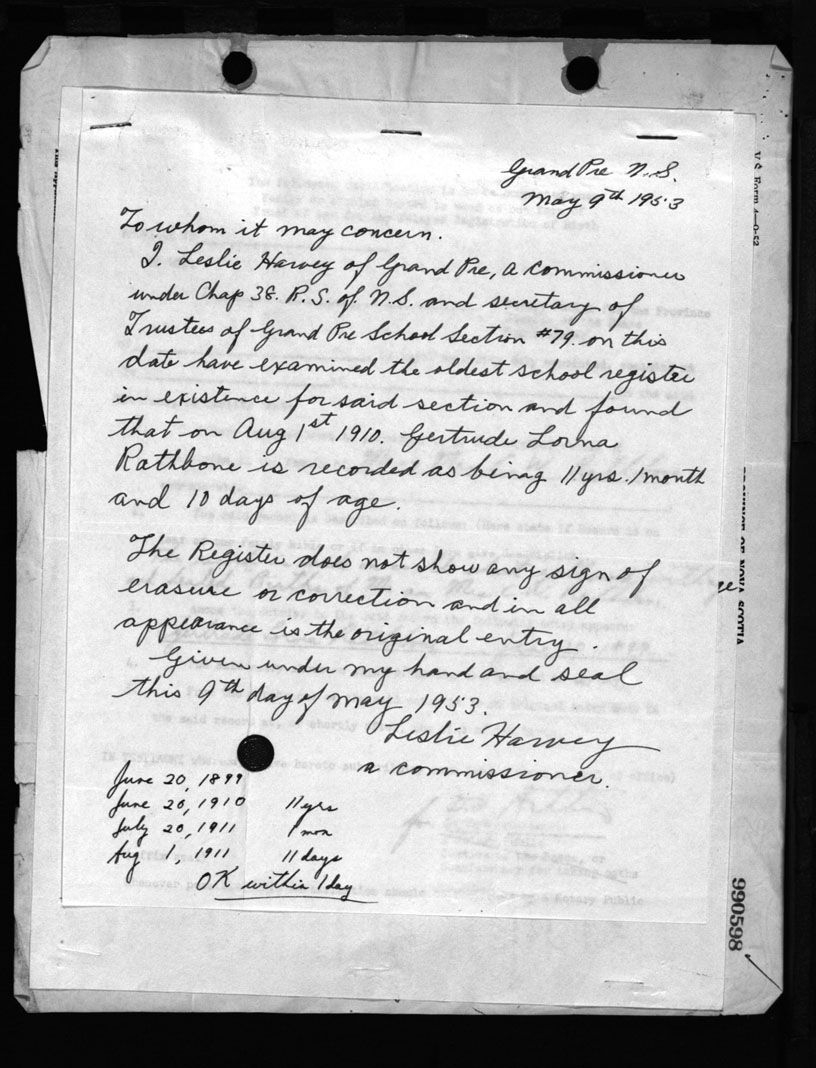 Grand Pre N.S.
May 9th 1953
To whom it may concern.
I. Leslie Harvey of Grand Pre, a Commissioner
under Chap 38. R.S. of N.S. and secretary of
Trustees of Grand Pre School Section #79. on this
date have examined the oldest school register
in existence for said section and found
that on Aug 1st 1910. Gertrude Lorna
Rathbone is recorded as being 11 yrs. 1 month
and 10 days of age.
The Register does not show any sign of
erasure or correction and in all
appearance is the original entry.
Given under my hand and seal
this 9th day of May 1953.
Leslie Harvey
a commissioner.
June 20, 1899
June 20, 1910 11 yrs
July 20, 1911 1 mon
Aug 1, 1911 11 days
OK within 1 day
PROVINCE OF NOVA SCOTIA
990598